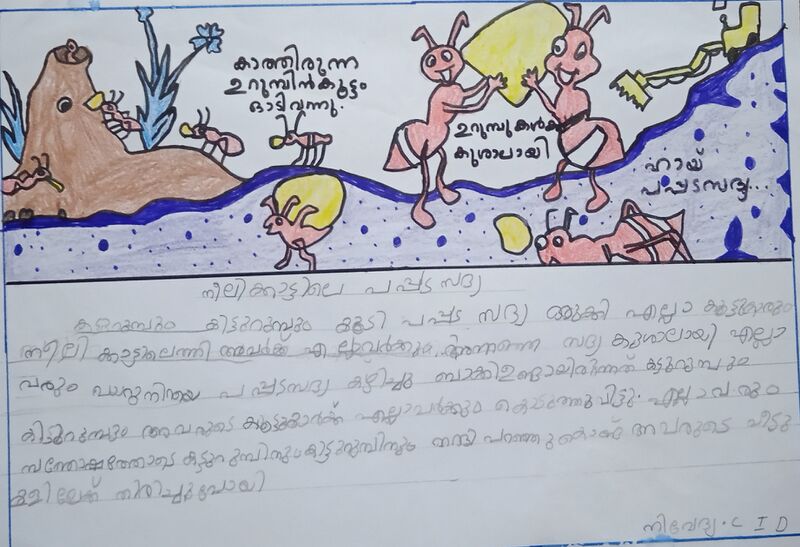 കാത്തിരുന്ന
ഉറുമ്പിൻകൂട്ടം
ഓടിവന്നു.
ഉറുമ്പുകൾക്ക്
കുശാലായി
ഹായ്
പപ്പടസദ്യ...
നീലിക്കാട്ടിലെ പപ്പട സദ്യ
കട്ടുറുമ്പും കിട്ടുറുമ്പും കൂടി പപ്പട സദ്യ ഒരുക്കി എല്ലാ കൂട്ടുകാരും
നീലി ക്കാട്ടിലെത്തി അവർക്ക് എല്ലാവർക്കും അന്നത്തെ സദ്യ കുശാലായി എല്ലാ
വരും വയറുനിറയെ പപ്പടസദ്യ കഴിച്ചു ബാക്കിഉണ്ടായിരുന്നത് കട്ടുറുമ്പും
കിട്ടുറുമ്പും അവരുടെ കൂട്ടുകാർക്ക് എല്ലാവർക്കും കൊടുത്തുവിട്ടു. എല്ലാവരും
സന്തോഷത്തോടെ കട്ടുറുമ്പിനും കിട്ടുറുമ്പിനും നന്ദി പറഞ്ഞുകൊണ്ട് അവരുടെ വീട്ടു
കളിലേക്ക് തിരിച്ചുപോയി
നിവേദ്യ. C I D